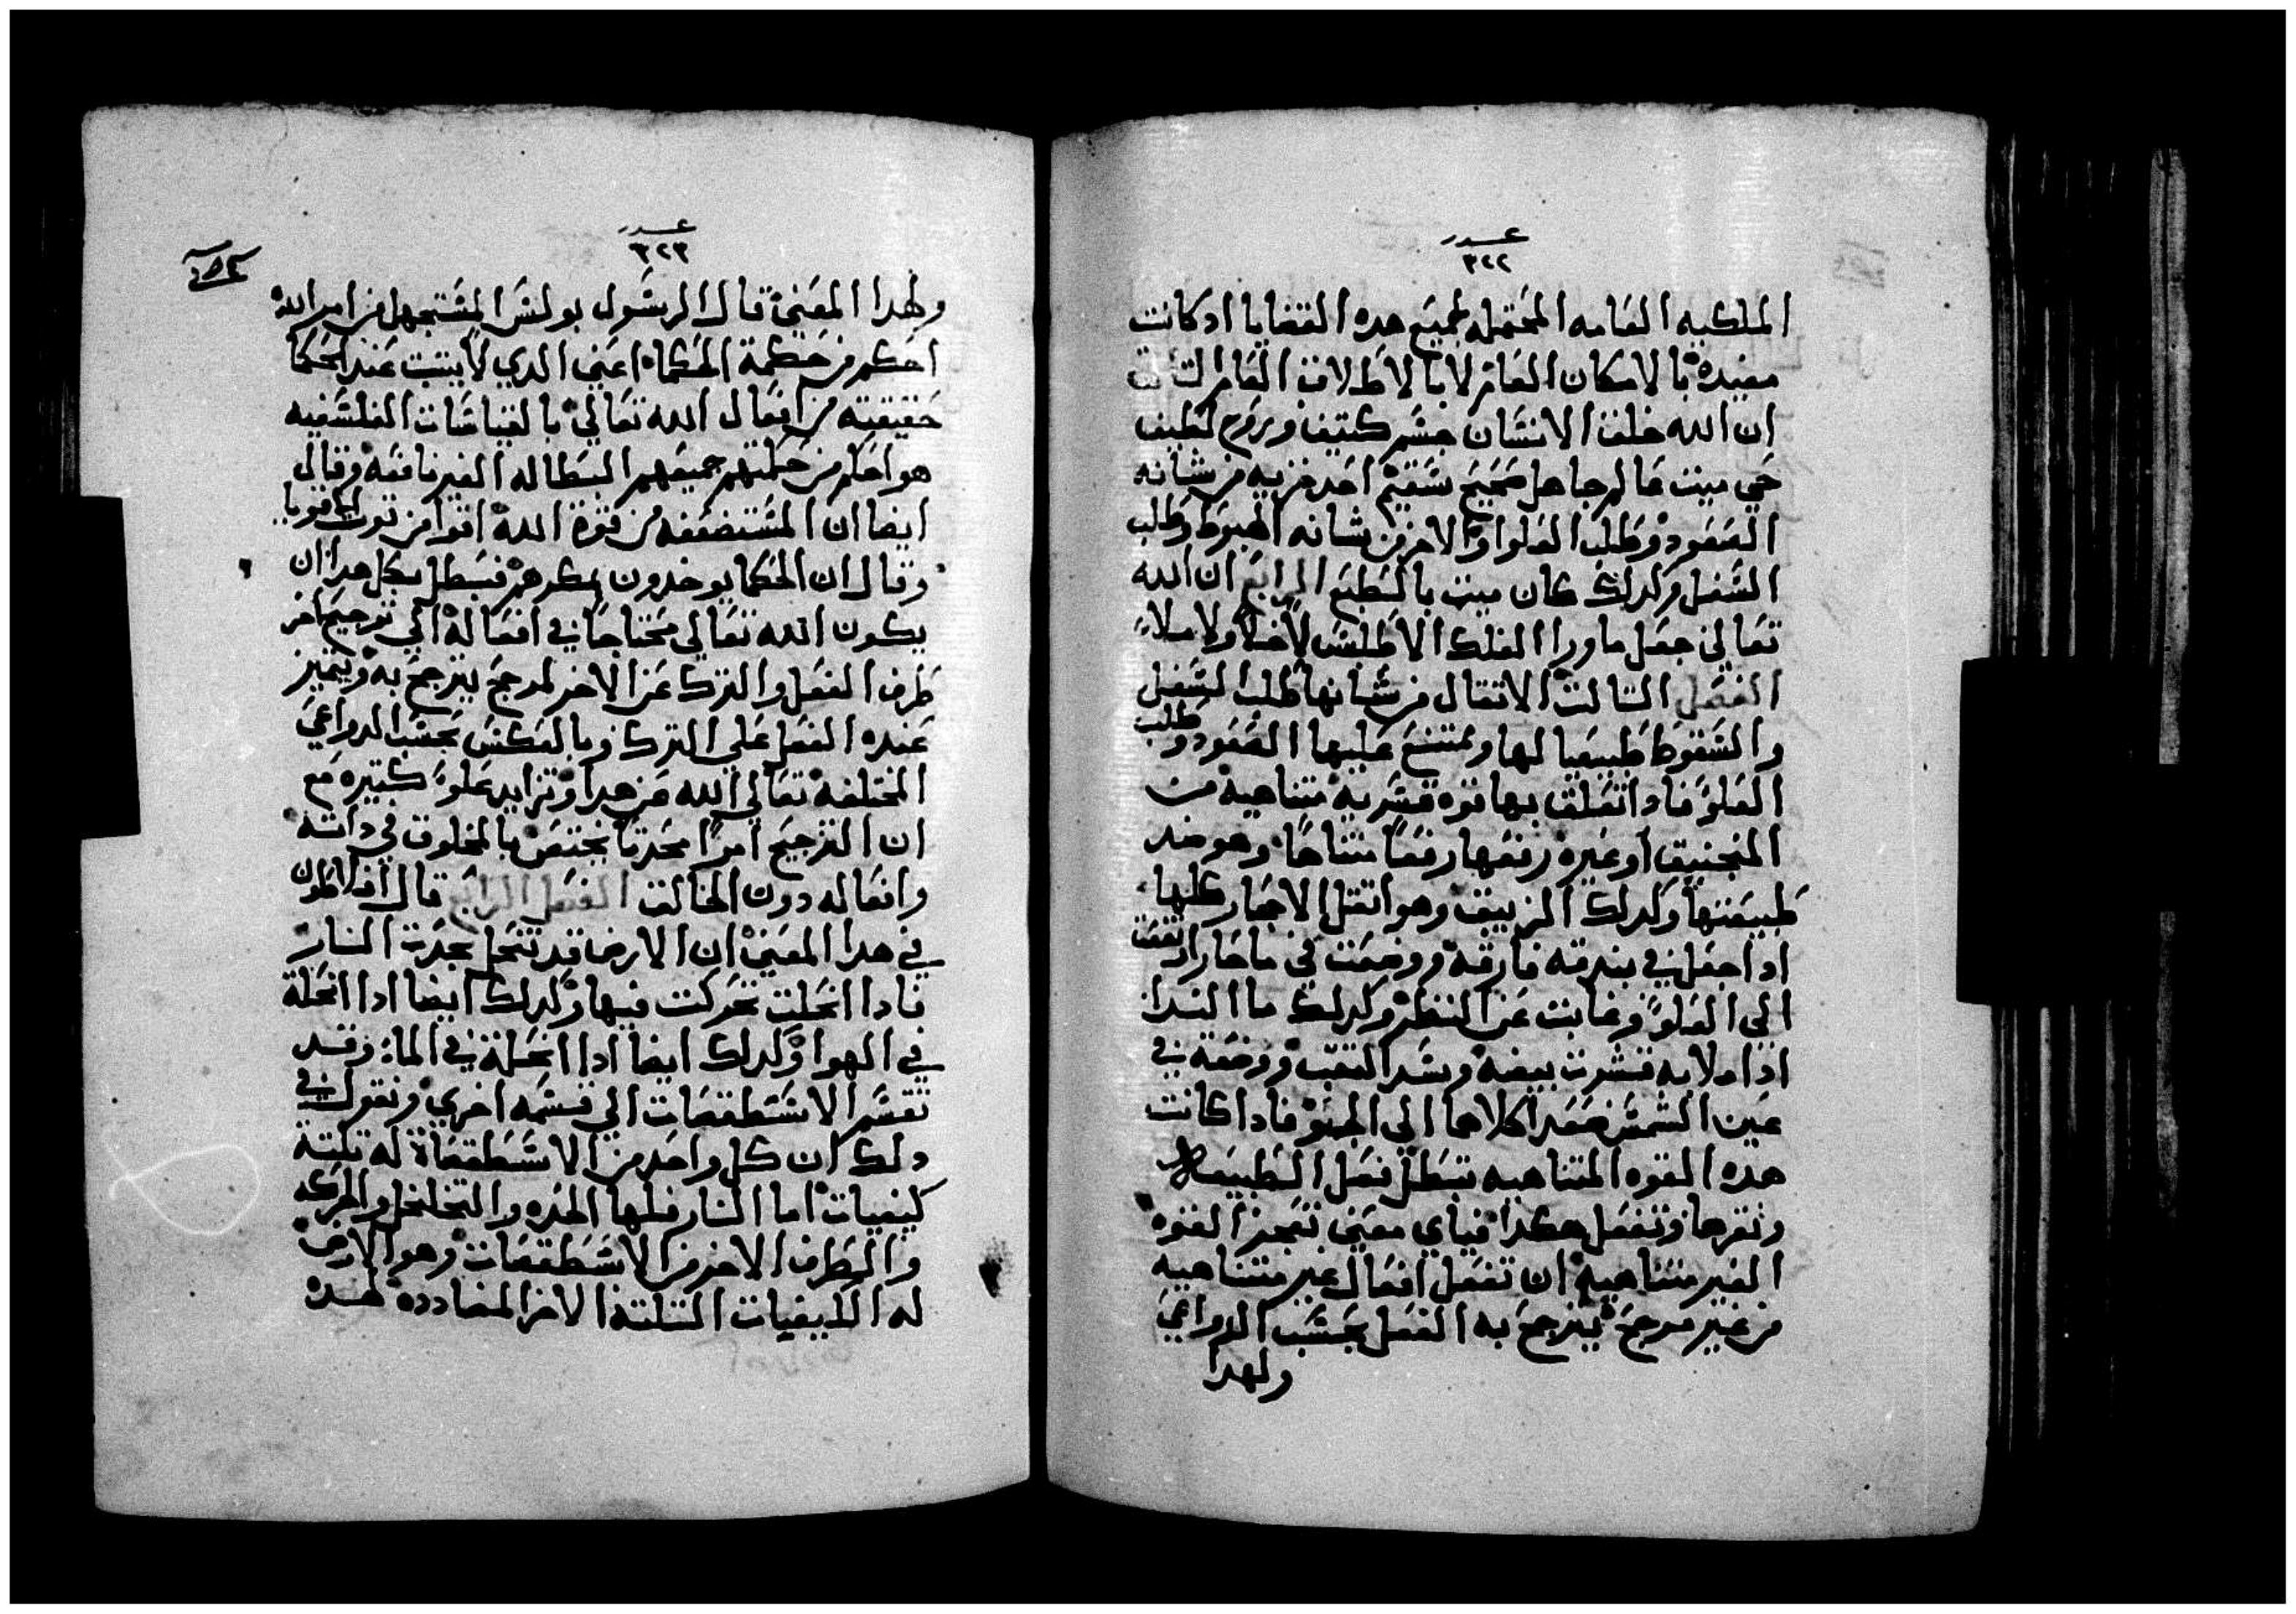 عدد
٣٢٢
الملكيه العامه المحتمله لجميع هده القضايا ادكانت
مقيده بالامكان العام لا بالاطلاق العام الثالث
ان الله خلق الانسان جسم كتيف وروح لطيف
حي ميت عالم جاهل صحيح سقيم احد جزيه من شانه
الصعود وطلب العلو والاخر من شانه الهبوط وطلب
السفل ولدلك كان ميت بالطبع الرابع ان الله
تعالي جعل ماورا الفلك الاطلس لا خلاً ولا ملاءً
الفصل التالت الاتقال من شانها طلب السفل
والسقوط طبيعيا لها ويمتنع عليها الصعود وطلب
العلو فادا تعلق بها قوه قسريه متناهيه من
المنجنيق او غيره رفعها رفعاً متناهاً وهو ضد
طبيعتها وكدلك الزيبق وهو اتقل الاحجار كلها
ادا جعل في بندقه فارقه ووضعت في ماحار ارتفعت
الي العلو وغابت عن النظر وكدلك ما الندا
ادا ملا به قشرت بيضه وسد التقب ووضعه في
عين الشمس صعدا كلاهما الي الجو فادا كانت
هده القوه المتناهيه تبطل فعل الطبيعه
وتقرها وتفعل هكدا فباي معني تعجز القوه
الغير متناهيه ان تفعل افعال غير متناهيه
من غير مرجح يترجح به الفعل بحسب الدواعي
ولهدا
عدد
٣٢٣
ولهدا المعني قال الرسول بولس المستجهل من امر الله
احكم من حكمة الحكماء اعني الدي لا يتبت عند الحكما
حقيقيته من افعال الله تعالي بالقياسات الفلسفيه
هو احكم من حكمتهم جميعهم البطاله الغير نافعه وقال
ايضا ان المستضعفه من قوة الله اقوا من قوت الاقويا
وقال ان الحكما يوخدون بمكرهم فبطل بكل هدا ان
يكون الله تعالي محتاجاً في افعاله الي ترجيح احد
طرف الفعل والترك عن الاخر لمرجح يترجح به ويتميز
عنده الفعل علي الترك وبالعكس بحسب الدواعي
المختلفه تعالي الله عن هدا وتزايد علواً كبيره مع
ان الترجيح امراً محدتاً يختص بالمخلوق في داته
وافعاله دون الخالق الفصل الرابع قال افلاطون
في هدا المعني ان الارض قد تنحل بحدت النار
فادا انحلت تحركت فيها وكدلك ايضا ادا انحلة
في الهوا وكدلك ايضا ادا انحلة في الماء وقد
تقسم الاسطقصات الي قسمه اخري ونقول في
دلك ان كل واحد من الاسطقصاة له تلتة
كيفيات اما النار فلها الحده والتخلخل والحركه
والطرف الاخر من الاسطقصات وهو الارض
له الكيفيات التلتة الاخر المضادده لهده